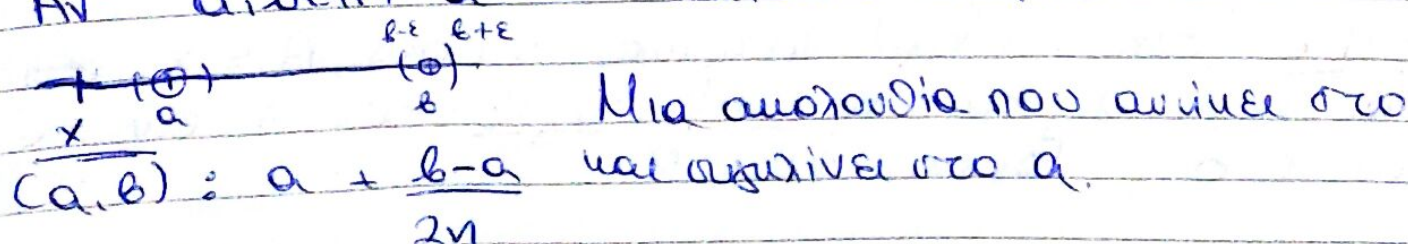 β-ε β+ε
x a β
Μια ακολουθία που ανήκει στο
(a, β) : a + \frac{β-a}{2n} και συγκλίνει στο a.